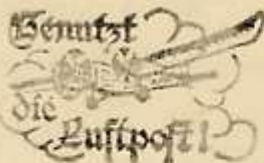 Benutzt
die
Luftpost!